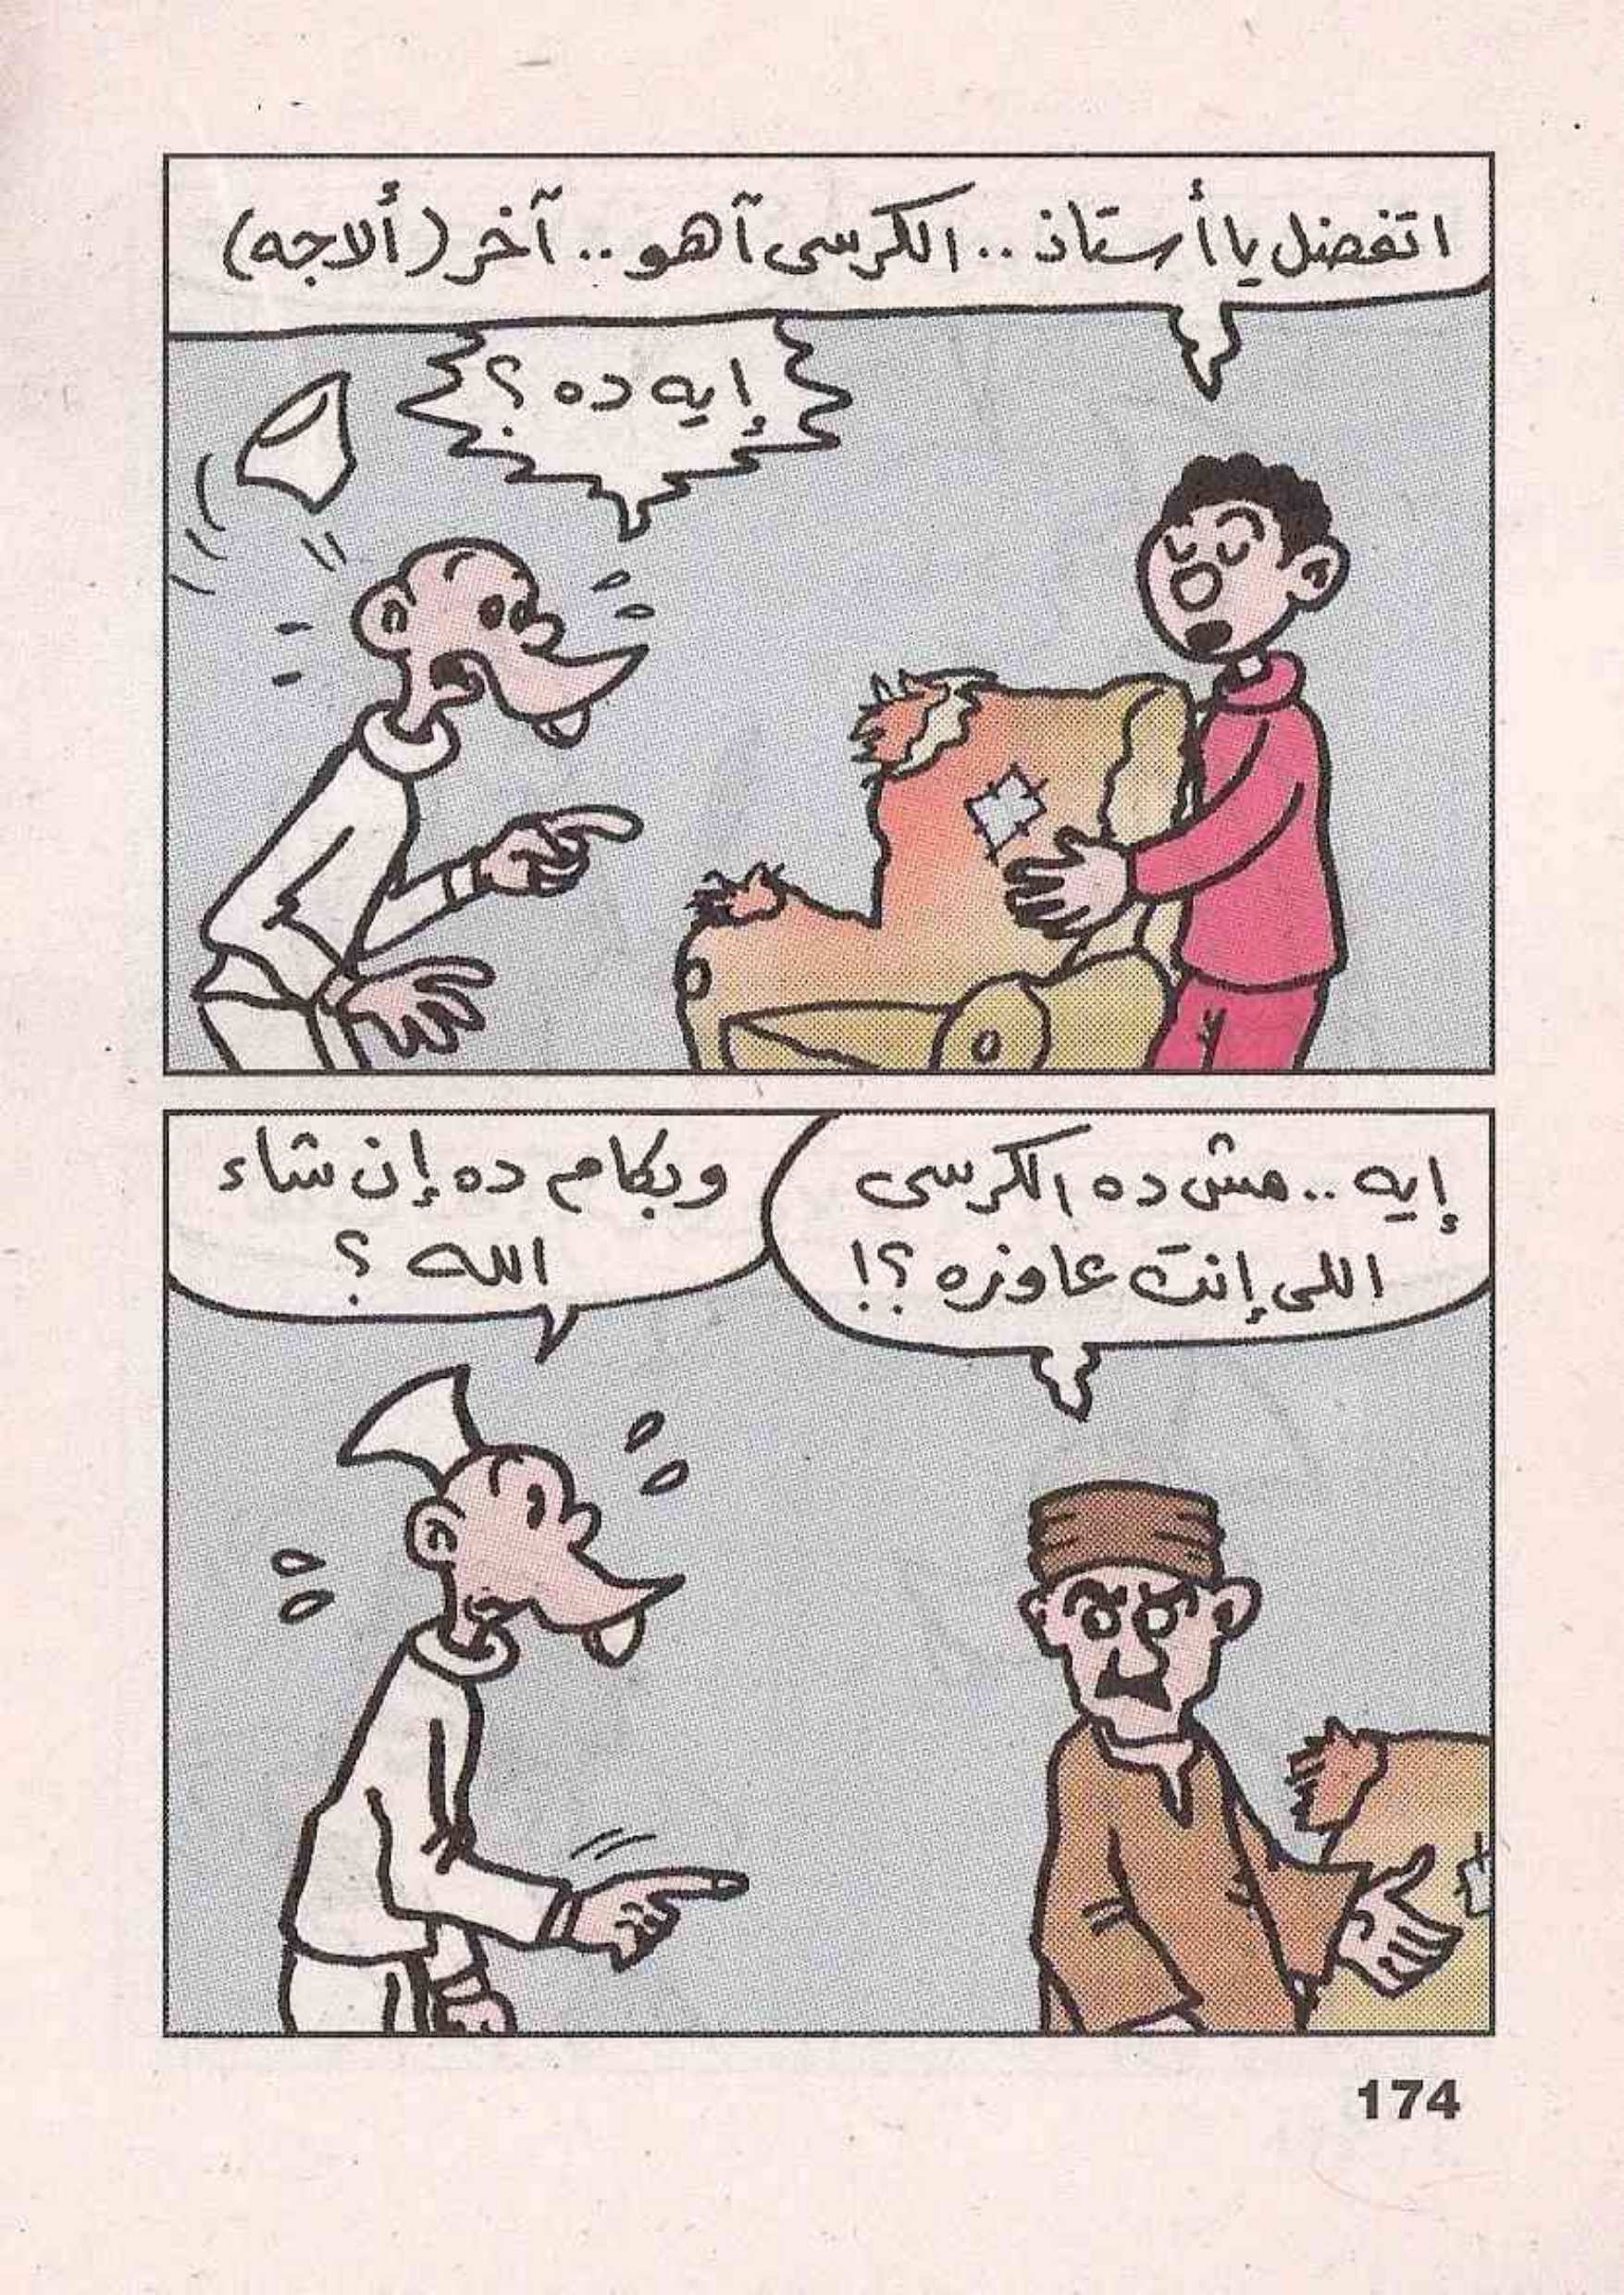 اتفضل يا أستاذ .. الكرسى آهو .. آخر (ألاجه)
إيه ده ؟
إيه .. مش ده الكرسى
اللى إنت عاوزه ؟!
وبكام ده إن شاء
الله ؟
174